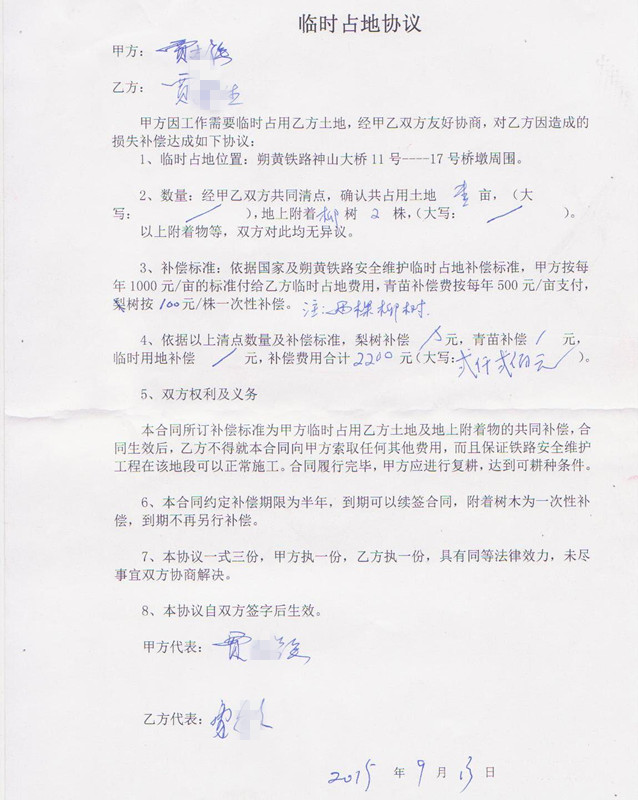 临时占地协议
甲方：贾
乙方：贾
甲方因工作需要临时占用乙方土地，经甲乙双方友好协商，对乙方因造成的
损失补偿达成如下协议：
1、临时占地位置：朔黄铁路神山大桥11号----17号桥墩周围。
2、数量：经甲乙双方共同清点，确认共占用土地 壹 亩，（大
写： / ），地上附着柳树 2 株，（大写： / ）。
以上附着物等，双方对此均无异议。
3、补偿标准：依据国家及朔黄铁路安全维护临时占地补偿标准，甲方按每
年1000元/亩的标准付给乙方临时占地费用，青苗补偿费按每年500元/亩支付，
梨树按 100元/株一次性补偿。注：两棵柳树.
4、依据以上清点数量及补偿标准，梨树补偿 元，青苗补偿 / 元，
临时用地补偿 / 元，补偿费用合计2200元（大写：弍仟弍佰元/）。
5、双方权利及义务
本合同所订补偿标准为甲方临时占用乙方土地及地上附着物的共同补偿，合
同生效后，乙方不得就本合同向甲方索取任何其他费用，而且保证铁路安全维护
工程在该地段可以正常施工。合同履行完毕，甲方应进行复耕，达到可耕种条件。
6、本合同约定补偿期限为半年，到期可以续签合同，附着树木为一次性补
偿，到期不再另行补偿。
7、本协议一式三份，甲方执一份，乙方执一份，具有同等法律效力，未尽
事宜双方协商解决。
8、本协议自双方签字后生效。
甲方代表：贾
乙方代表：
2015 年 9 月 13 日